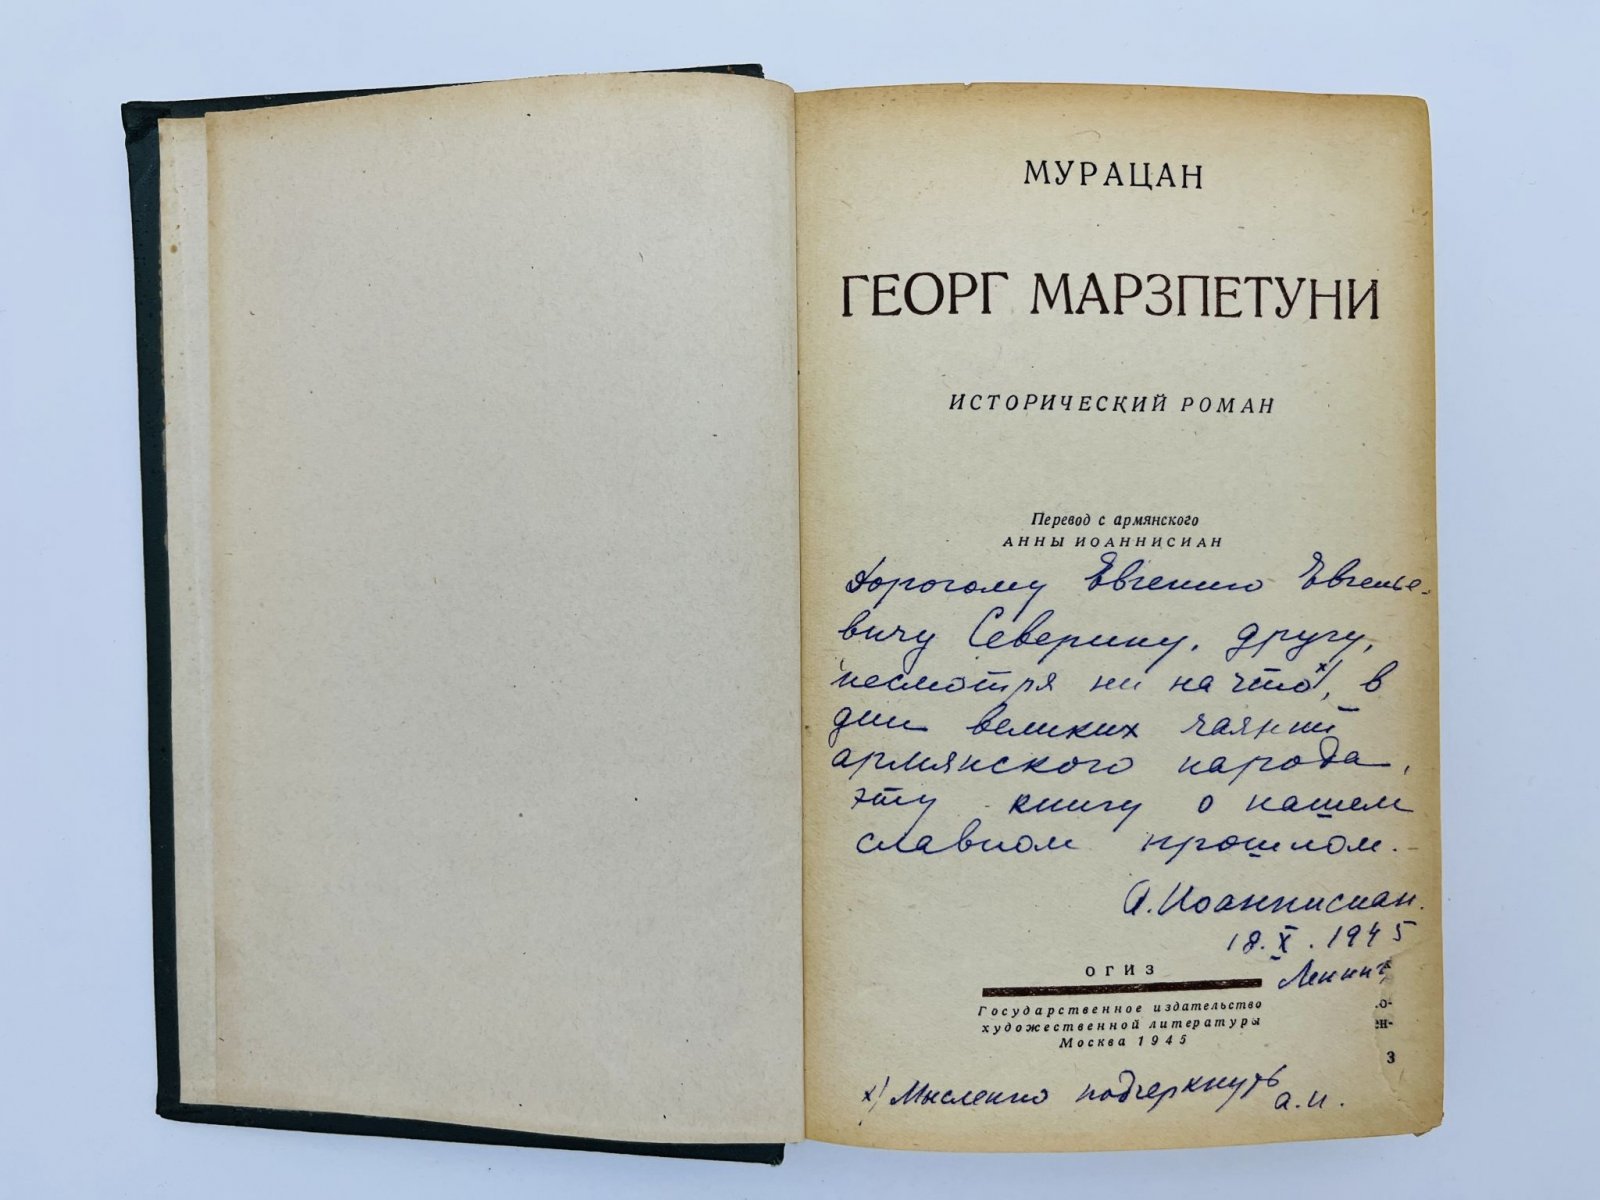 МУРАЦАН
ГЕОРГ МАРЗПЕТУНИ
ИСТОРИЧЕСКИЙ РОМАН
Перевод с армянского
АННЫ ИОАННИСИАН
Дорогому Евгению Евгенье-
вичу Северину, другу,
несмотря ни на что х), в
дни великих чаяний
армянского народа,
эту книгу о нашем
славном прошлом.
А. Иоаннисиан.
18.X.1945
Ленинг
ОГИЗ
Государственное издательство
художественной литературы
Москва 1945
о-
ен-
3
х) Мысленно подчеркнуть
А.И.